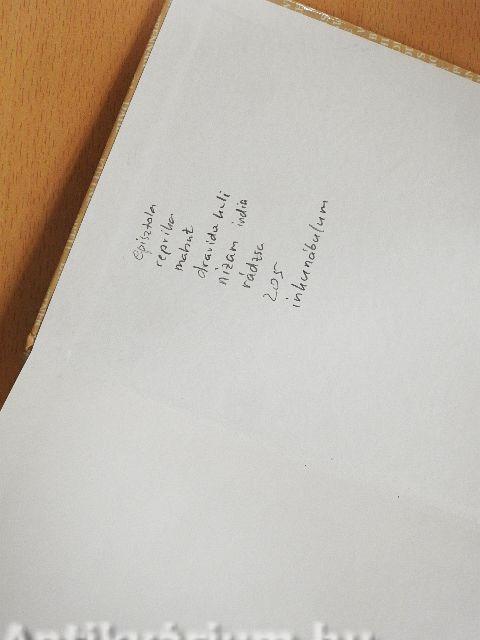 episztola
reprika
mahut
dravida kuli
nizam india
rádzsa
205
inkunábulum
Antikvárium.hu